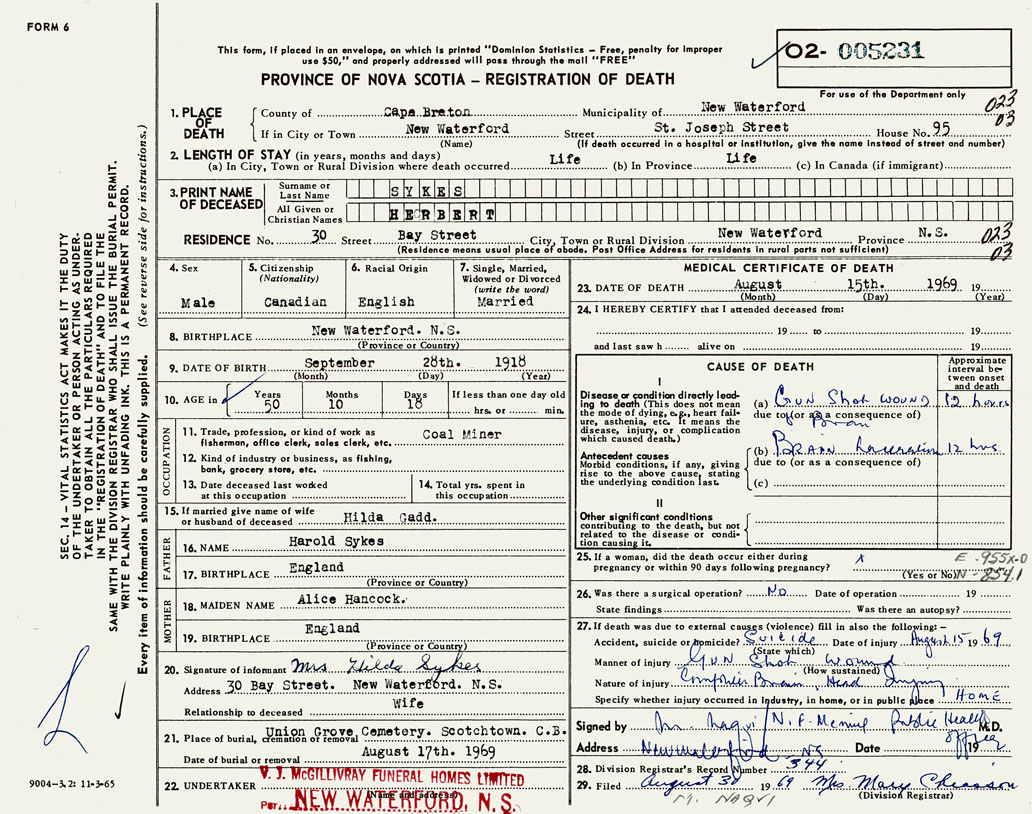 FORM 6
This form, if placed in an envelope, on which is printed "Dominion Statistics – Free, penalty for improper
use $50," and properly addressed will pass through the mail "FREE"
PROVINCE OF NOVA SCOTIA – REGISTRATION OF DEATH
02- 005231
For use of the Department only
SEC. 14 – VITAL STATISTICS ACT MAKES IT THE DUTY
OF THE UNDERTAKER OR PERSON ACTING AS UNDER-
TAKER TO OBTAIN ALL THE PARTICULARS REQUIRED
IN THE "REGISTRATION OF DEATH" AND TO FILE THE
SAME WITH THE DIVISION REGISTRAR WHO SHALL ISSUE THE BURIAL PERMIT.
WRITE PLAINLY WITH UNFADING INK. THIS IS A PERMANENT RECORD.
Every item of information should be carefully supplied. (See reverse side for instructions.)
1. PLACE OF DEATH
County of Cape Breton Municipality of New Waterford 023
03
If in City or Town New Waterford Street St. Joseph Street House No. 95
(Name) (If death occurred in a hospital or institution, give the name instead of street and number)
2. LENGTH OF STAY (in years, months and days)
(a) In City, Town or Rural Division where death occurred Life (b) In Province Life (c) In Canada (if immigrant)
3. PRINT NAME OF DECEASED
Surname or Last Name SYKES
All Given or Christian Names HERBERT
RESIDENCE No. 30 Street Bay Street City, Town or Rural Division New Waterford Province N.S. 023
03
(Residence means usual place of abode. Post Office Address for residents in rural parts not sufficient)
4. Sex
Male
5. Citizenship
(Nationality)
Canadian
6. Racial Origin
English
7. Single, Married,
Widowed or Divorced
(write the word)
Married
8. BIRTHPLACE New Waterford. N.S.
(Province or Country)
9. DATE OF BIRTH September 28th. 1918
(Month) (Day) (Year)
10. AGE in Years 50 Months 10 Days 18 If less than one day old
hrs. or min.
OCCUPATION
11. Trade, profession, or kind of work as
fisherman, office clerk, sales clerk, etc. Coal Miner
12. Kind of industry or business, as fishing,
bank, grocery store, etc.
13. Date deceased last worked
at this occupation
14. Total yrs. spent in
this occupation
15. If married give name of wife
or husband of deceased Hilda Gadd.
FATHER
16. NAME Harold Sykes
17. BIRTHPLACE England
(Province or Country)
MOTHER
18. MAIDEN NAME Alice Hancock.
19. BIRTHPLACE England
(Province or Country)
20. Signature of informant Mrs Hilda Sykes
Address 30 Bay Street. New Waterford. N.S.
Relationship to deceased Wife
21. Place of burial, cremation or removal Union Grove Cemetery. Scotchtown. C.B.
Date of burial or removal August 17th. 1969
22. UNDERTAKER V. J. McGILLIVRAY FUNERAL HOMES LIMITED
(Name and address)
Per. NEW WATERFORD, N. S.
9004-3.2: 11-3-65
MEDICAL CERTIFICATE OF DEATH
23. DATE OF DEATH August 15th. 1969 19
(Month) (Day) (Year)
24. I HEREBY CERTIFY that I attended deceased from:
19 to 19
and last saw h alive on 19
CAUSE OF DEATH
Approximate
interval be-
tween onset
and death
I
Disease or condition directly lead-
ing to death (This does not mean
the mode of dying, e.g., heart fail-
ure, asthenia, etc. It means the
disease, injury, or complication
which caused death.)
(a) Gun Shot Wound 12 hours
due to (or as a consequence of)
Brain
Antecedent causes
Morbid conditions, if any, giving
rise to the above cause, stating
the underlying condition last.
(b) Brain Laceration 12 hrs.
due to (or as a consequence of)
(c)
II
Other significant conditions
contributing to the death, but not
related to the disease or condi-
tion causing it.
25. If a woman, did the death occur either during
pregnancy or within 90 days following pregnancy? x
(Yes or No)
E -955X-0
N - 854.1
26. Was there a surgical operation? No Date of operation 19
State findings Was there an autopsy?
27. If death was due to external causes (violence) fill in also the following:–
Accident, suicide or homicide? Suicide Date of injury August 15 19 69
(State which)
Manner of injury Gun Shot Wound
(How sustained)
Nature of injury Brain, Head Injury
Specify whether injury occurred in industry, in home, or in public place HOME
Signed by M. Naqvi Public Health Officer M.D.
Address New Waterford NS Date 19
28. Division Registrar's Record Number 344
29. Filed August 30 19 69 Mrs Mary Chiasson
(Division Registrar)
M. NAQVI